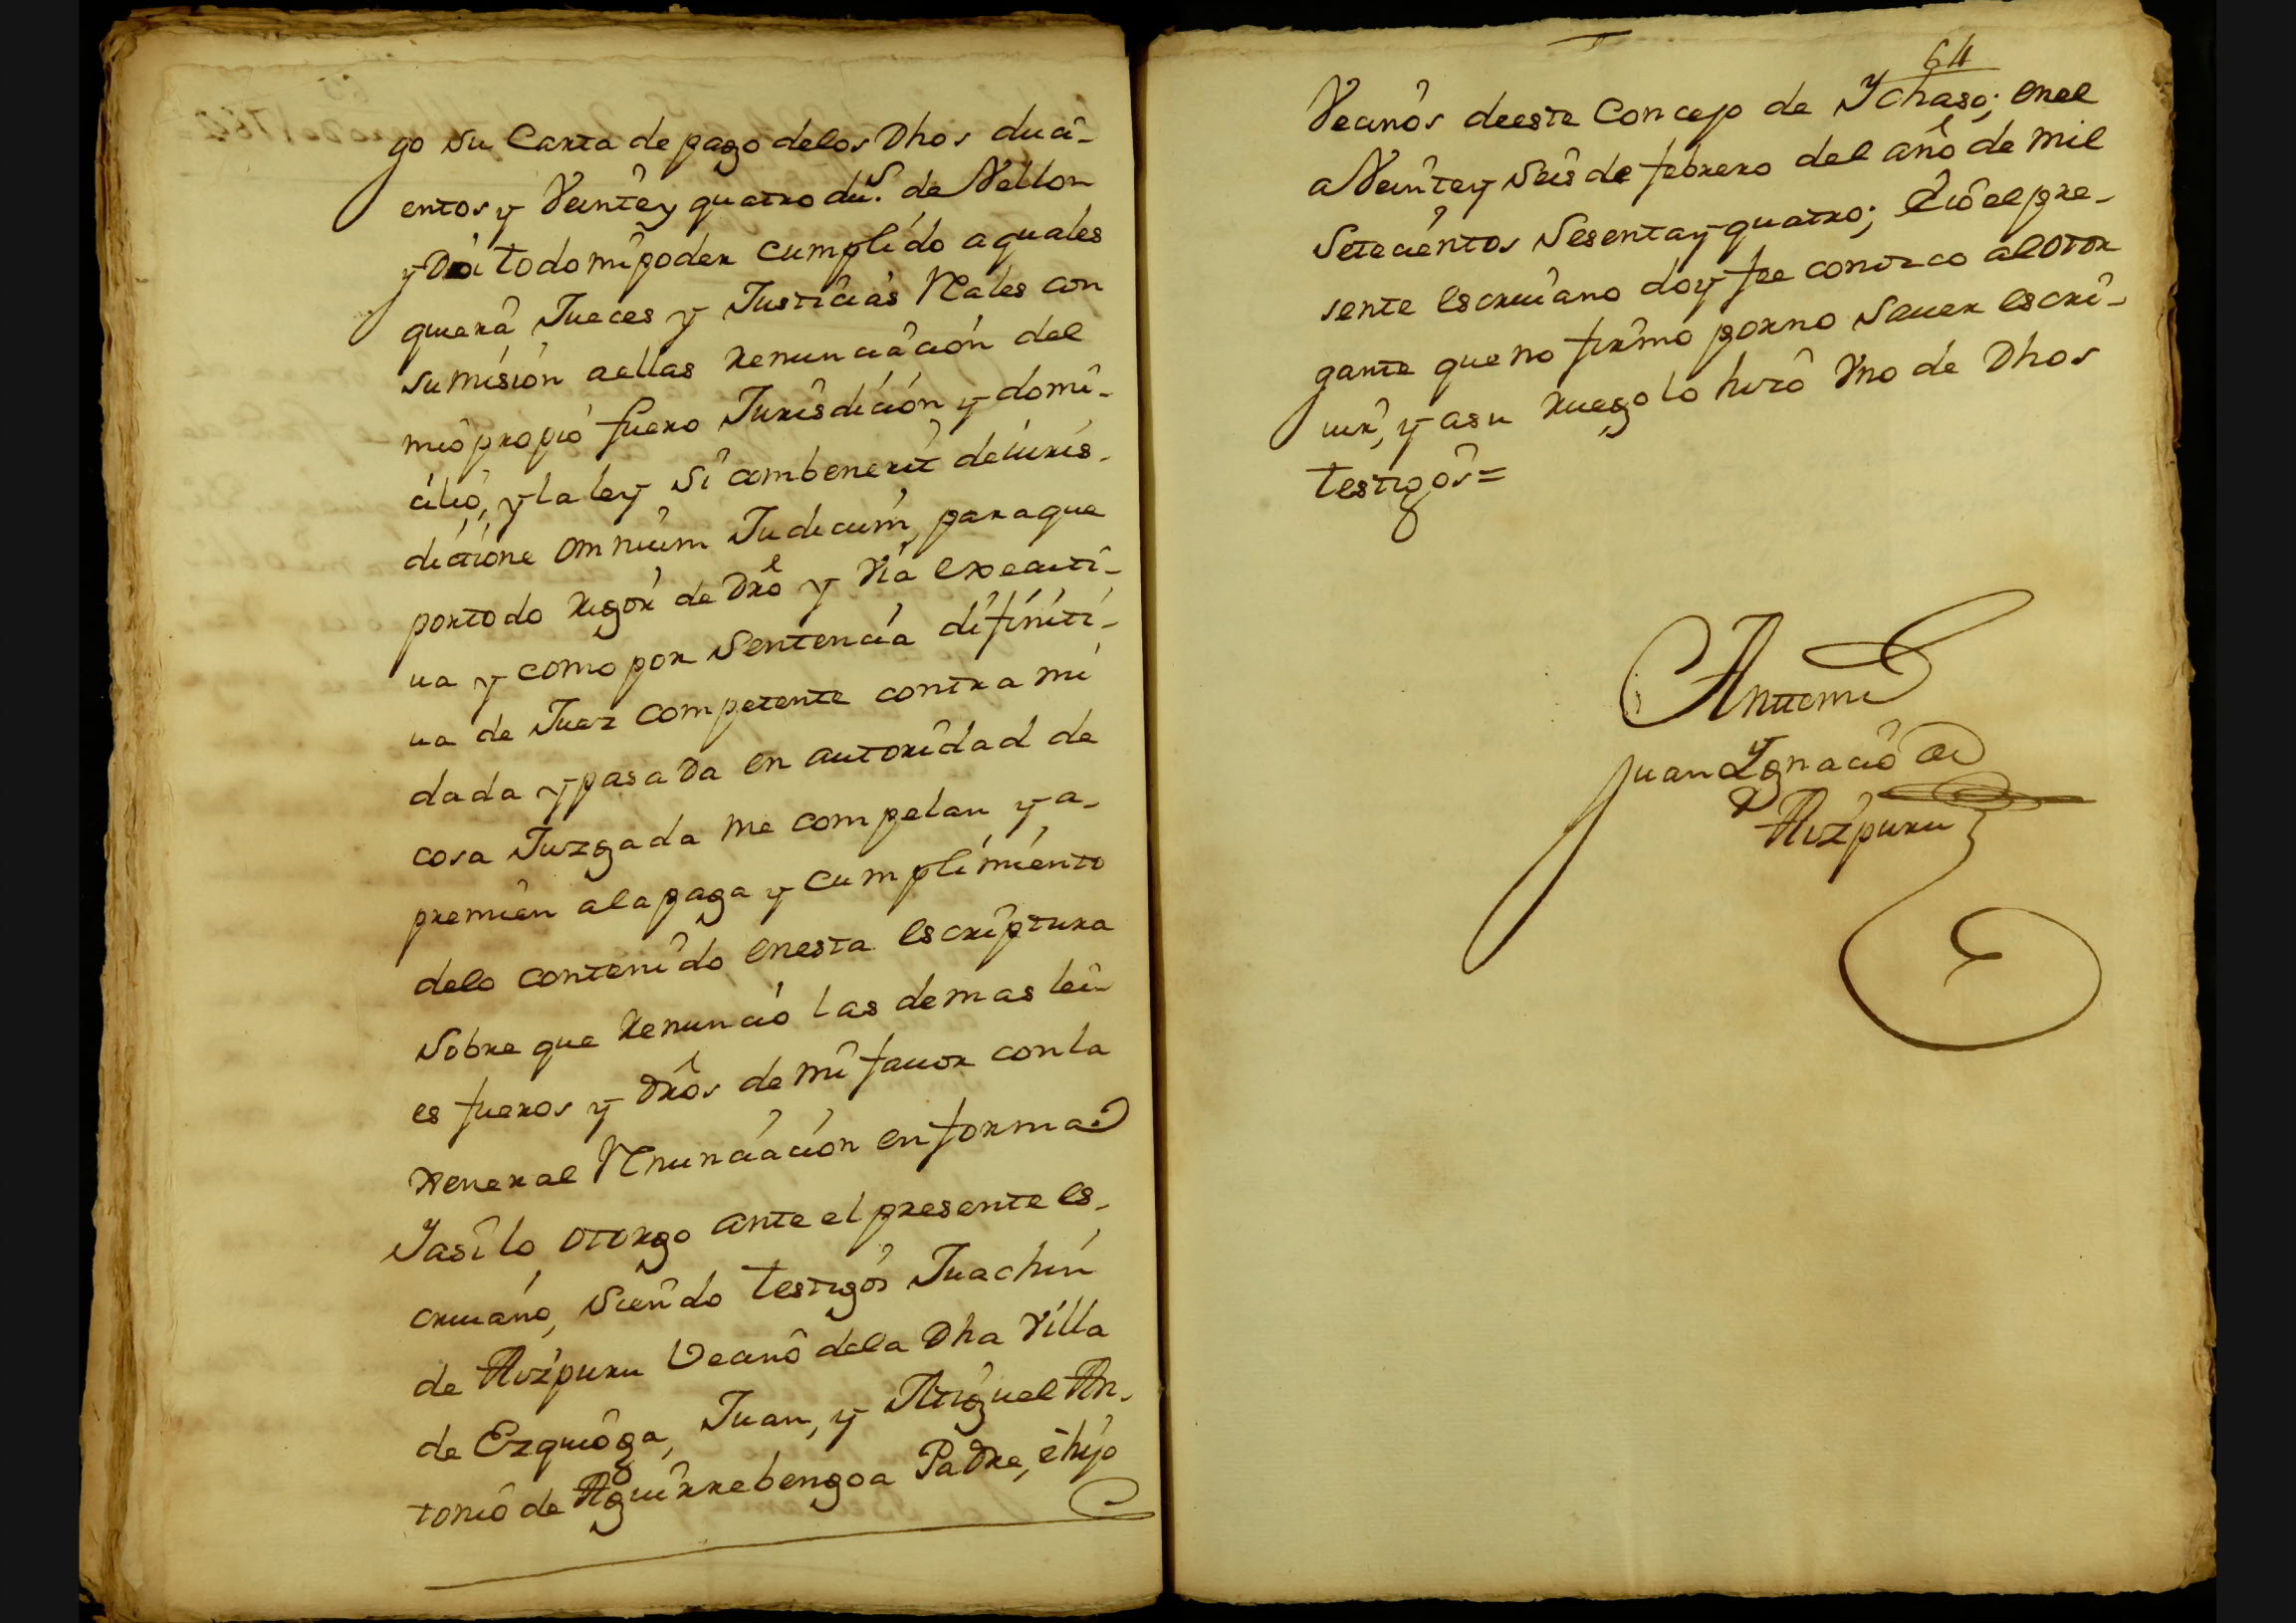 go su Carta de pago delos Dhos duci-
entos y Veinte y quatro du.s de Vellon
y Doi todo mi poder cumplido a quales
quiera Jueces y Justicias Rales con
sumision a ellas renunciacion del
mio propio fuero Jurisdicion y domi-
cilio, y la ley si combenerit de iuris-
dictione omnium Judicum, para que
por todo rigor de Dro y Via executi-
ua y como por sentencia difiniti-
ua de Juez competente contra mi
dada y pasada en autoridad de
cosa Juzgada me compelan y a-
premien ala paga y cumplimiento
delo contenido en esta escriptura
sobre que renuncio las demas lei-
es fueros y dros de mi fauor con la
xeneral Renunciacion en forma
Y asi lo otorgo ante el presente es-
criuano, siendo testigos Juachin
de Aizpuru Vecino dela Dha Villa
de Ezquioga, Juan, y Miguel An-
tonio de Aguirrebengoa Padre, è hijo
64
Vecinos de este Concejo de Ychaso; en el
a Veinte y seis de febrero del año de mil
setecientos sesenta y quatro; Èio el pre-
sente escriuano doy fee conozco al otor
gante que no firmo por no sauer escri-
uir, y a su ruego lo hizo Vno de Dhos
testigos=
Anttemi
Juan Ygnacio de
Aizpuru